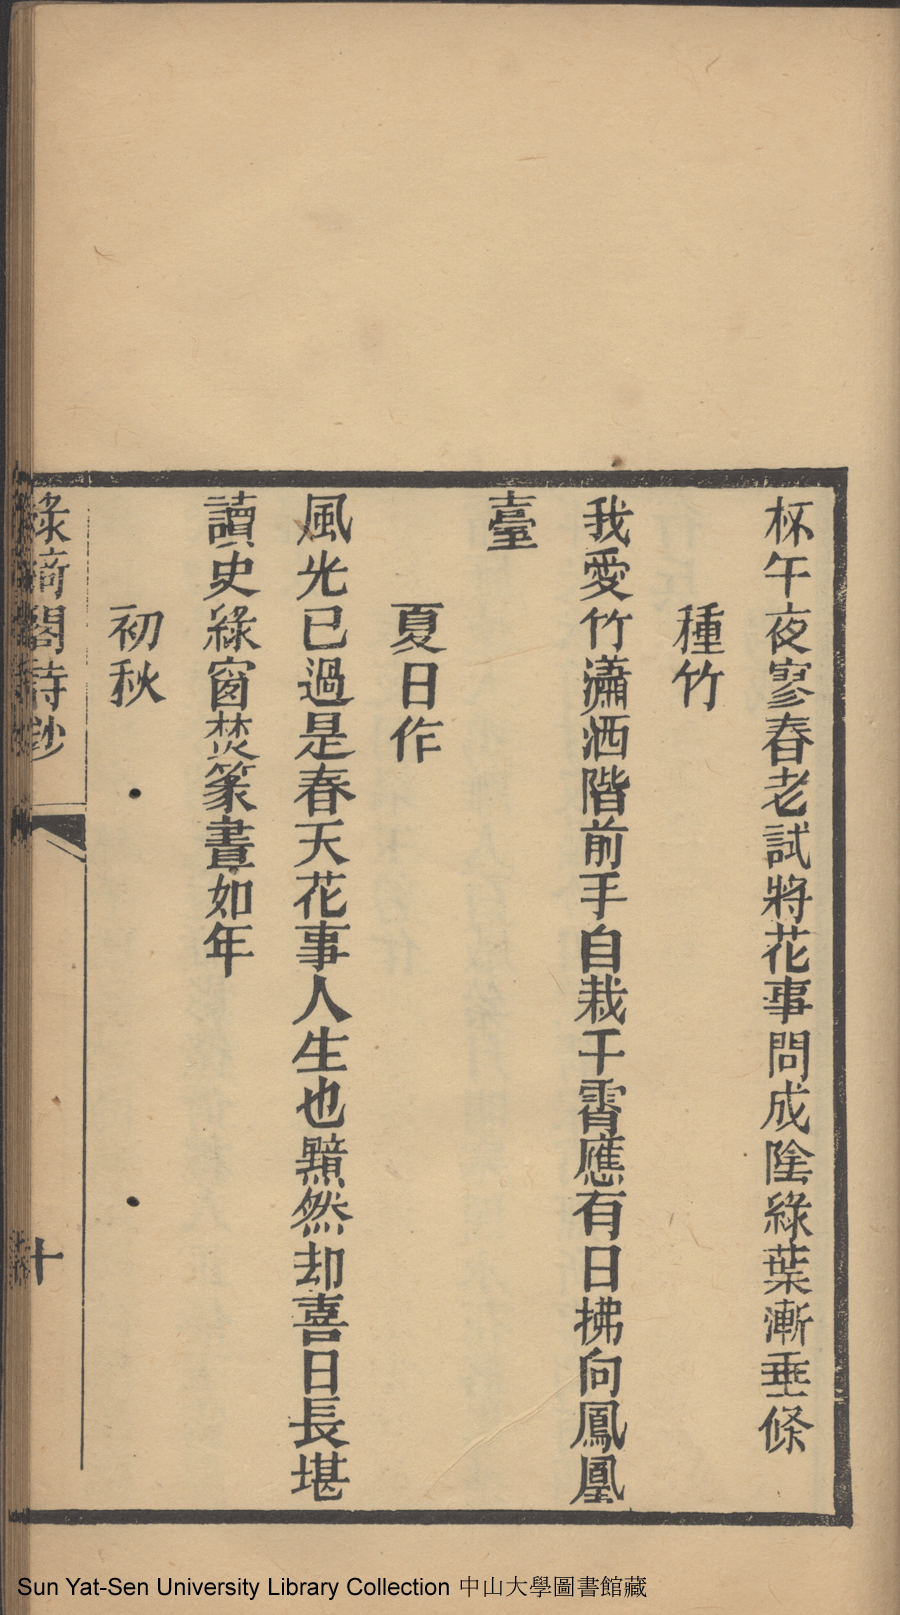 杯午夜寥春老試將花事問成陰綠葉漸垂條
種竹
我愛竹瀟洒階前手自栽干霄應有日拂向鳳凰
臺
夏日作
風光已過是春天花事人生也黯然却喜日長堪
讀史綠窗焚篆晝如年
初秋
綠綺閣詩鈔
十
Sun Yat-Sen University Library Collection 中山大學圖書館藏